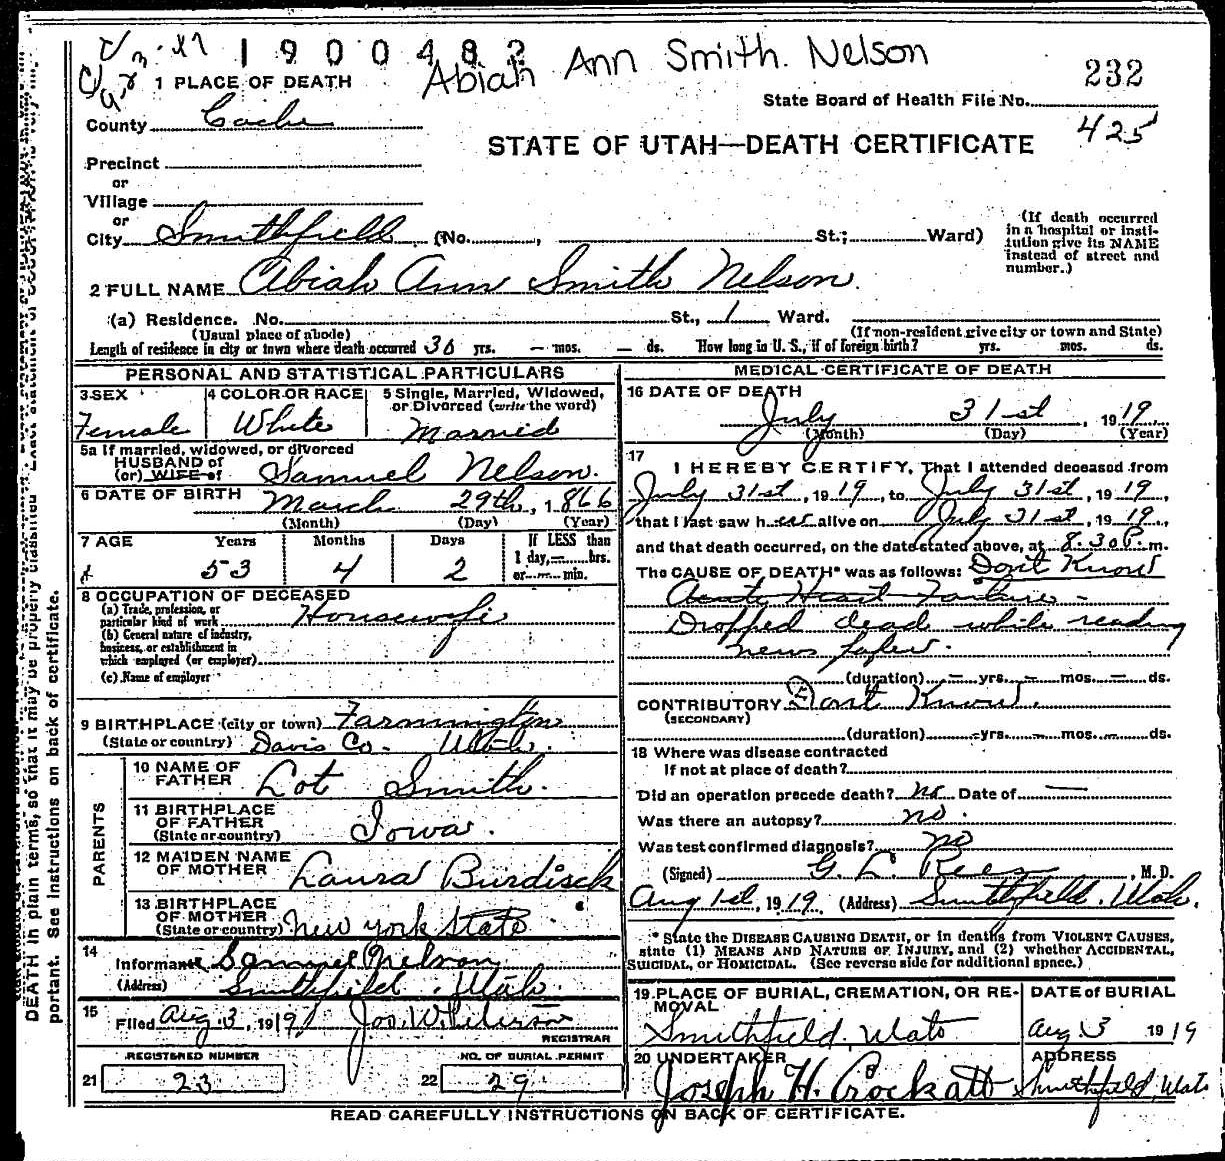 1900482
Abiah Ann Smith. Nelson
232
1 PLACE OF DEATH
State Board of Health File No.
County Cache
425
STATE OF UTAH—DEATH CERTIFICATE
Precinct
or
Village
or
City Smithfield (No. , St.; Ward)
(If death occurred in a hospital or insti-
tution give its NAME
instead of street and
number.)
2 FULL NAME Abiah Ann Smith Nelson.
(a) Residence. No. St., 1 Ward.
(Usual place of abode) (If non-resident give city or town and State)
Length of residence in city or town where death occurred 30 yrs. — mos. — ds. How long in U. S., if of foreign birth? yrs. mos. ds.
PERSONAL AND STATISTICAL PARTICULARS
3 SEX
Female
4 COLOR OR RACE
White
5 Single, Married, Widowed,
or Divorced (write the word)
Married
5a If married, widowed, or divorced
HUSBAND of
(or) WIFE of Samuel Nelson.
6 DATE OF BIRTH March 29th, 1866
(Month) (Day) (Year)
7 AGE Years Months Days If LESS than
1 day,—hrs.
53 4 2 or—min.
8 OCCUPATION OF DECEASED
(a) Trade, profession, or
particular kind of work Housewife
(b) General nature of industry,
business, or establishment in
which employed (or employer)
(c) Name of employer
9 BIRTHPLACE (city or town) Farmington
(State or country) Davis Co. Utah.
PARENTS
10 NAME OF
FATHER Lot Smith.
11 BIRTHPLACE
OF FATHER
(State or country) Iowa.
12 MAIDEN NAME
OF MOTHER Laura Burdisck
13 BIRTHPLACE
OF MOTHER
(State or country) New York State
14
Informant Samuel Nelson
(Address) Smithfield. Utah.
15
Filed Aug. 3, 1919 Jos. W. Peterson
REGISTRAR
REGISTERED NUMBER
21 23
NO. OF BURIAL PERMIT
22 29
MEDICAL CERTIFICATE OF DEATH
16 DATE OF DEATH
July 31st 1919
(Month) (Day) (Year)
17
I HEREBY CERTIFY, That I attended deceased from
July 31st, 1919, to July 31st, 1919,
that I last saw her alive on July 31st, 1919,
and that death occurred, on the date stated above, at 8.30 P. m.
The CAUSE OF DEATH* was as follows: Don't Know
Acute Heart Failure —
Dropped dead while reading
news paper.
(duration) — yrs. — mos. — ds.
CONTRIBUTORY Dont Know.
(SECONDARY)
(duration) — yrs. — mos. — ds.
18 Where was disease contracted
If not at place of death?
Did an operation precede death? no Date of —
Was there an autopsy? no.
Was test confirmed diagnosis? no
(Signed) G. L. Rees, M. D.
Aug 1st, 1919. (Address) Smithfield. Utah.
* State the DISEASE CAUSING DEATH, or in deaths from VIOLENT CAUSES,
state (1) MEANS AND NATURE OF INJURY, and (2) whether ACCIDENTAL,
SUICIDAL, or HOMICIDAL. (See reverse side for additional space.)
19 PLACE OF BURIAL, CREMATION, OR RE-
MOVAL
Smithfield, Utah
DATE of BURIAL
Aug. 3 1919
20 UNDERTAKER
Joseph H. Crockatt
ADDRESS
Smithfield, Utah
READ CAREFULLY INSTRUCTIONS ON BACK OF CERTIFICATE.
DEATH in plain terms, so that it may be properly classified.
portant. See instructions on back of certificate.